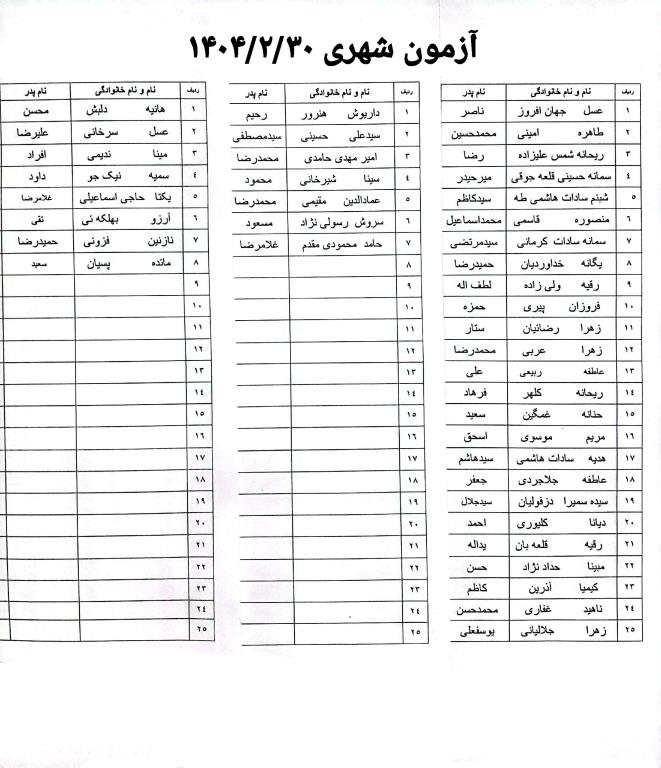 آزمون شهری ۱۴۰۴/۲/۳۰
ردیف نام و نام خانوادگی نام پدر
۱ عسل جهان افروز ناصر
۲ طاهره امینی محمدحسین
۳ ریحانه شمس علیزاده رضا
۴ سمانه حسینی قلعه جوقی میرحیدر
۵ شبنم سادات هاشمی طه سیدکاظم
۶ منصوره قاسمی محمداسماعیل
۷ سمانه سادات کرمانی سیدمرتضی
۸ یگانه خداوردیان حمیدرضا
۹ رقیه ولی زاده لطف اله
۱۰ فروزان پیری حمزه
۱۱ زهرا رضائیان ستار
۱۲ زهرا عربی محمدرضا
۱۳ عاطفه ربیعی علی
۱۴ ریحانه کلهر فرهاد
۱۵ حنانه غمگین سعید
۱۶ مریم موسوی اسحق
۱۷ هدیه سادات هاشمی سیدهاشم
۱۸ عاطفه جلاجردی جعفر
۱۹ سیده سمیرا دزفولیان سیدجلال
۲۰ دیانا کلیوری احمد
۲۱ رقیه قلعه بان یداله
۲۲ مبینا حداد نژاد حسن
۲۳ کیمیا آذرین کاظم
۲۴ ناهید غفاری محمدحسن
۲۵ زهرا جلالیانی یوسفعلی
ردیف نام و نام خانوادگی نام پدر
۱ داریوش هنرور رحیم
۲ سیدعلی حسینی سیدمصطفی
۳ امیر مهدی حامدی محمدرضا
۴ سینا شیرخانی محمود
۵ عمادالدین مقیمی محمدرضا
۶ سروش رسولی نژاد مسعود
۷ حامد محمودی مقدم غلامرضا
۸
۹
۱۰
۱۱
۱۲
۱۳
۱۴
۱۵
۱۶
۱۷
۱۸
۱۹
۲۰
۲۱
۲۲
۲۳
۲۴
۲۵
ردیف نام و نام خانوادگی نام پدر
۱ هانیه دلبش محسن
۲ عسل سرخانی علیرضا
۳ مینا ندیمی افراد
۴ سمیه نیک جو داود
۵ یکتا حاجی اسماعیلی غلامرضا
۶ آرزو بهلکه ئی تقی
۷ نازنین فزونی حمیدرضا
۸ مائده پسیان سعید
۹
۱۰
۱۱
۱۲
۱۳
۱۴
۱۵
۱۶
۱۷
۱۸
۱۹
۲۰
۲۱
۲۲
۲۳
۲۴
۲۵